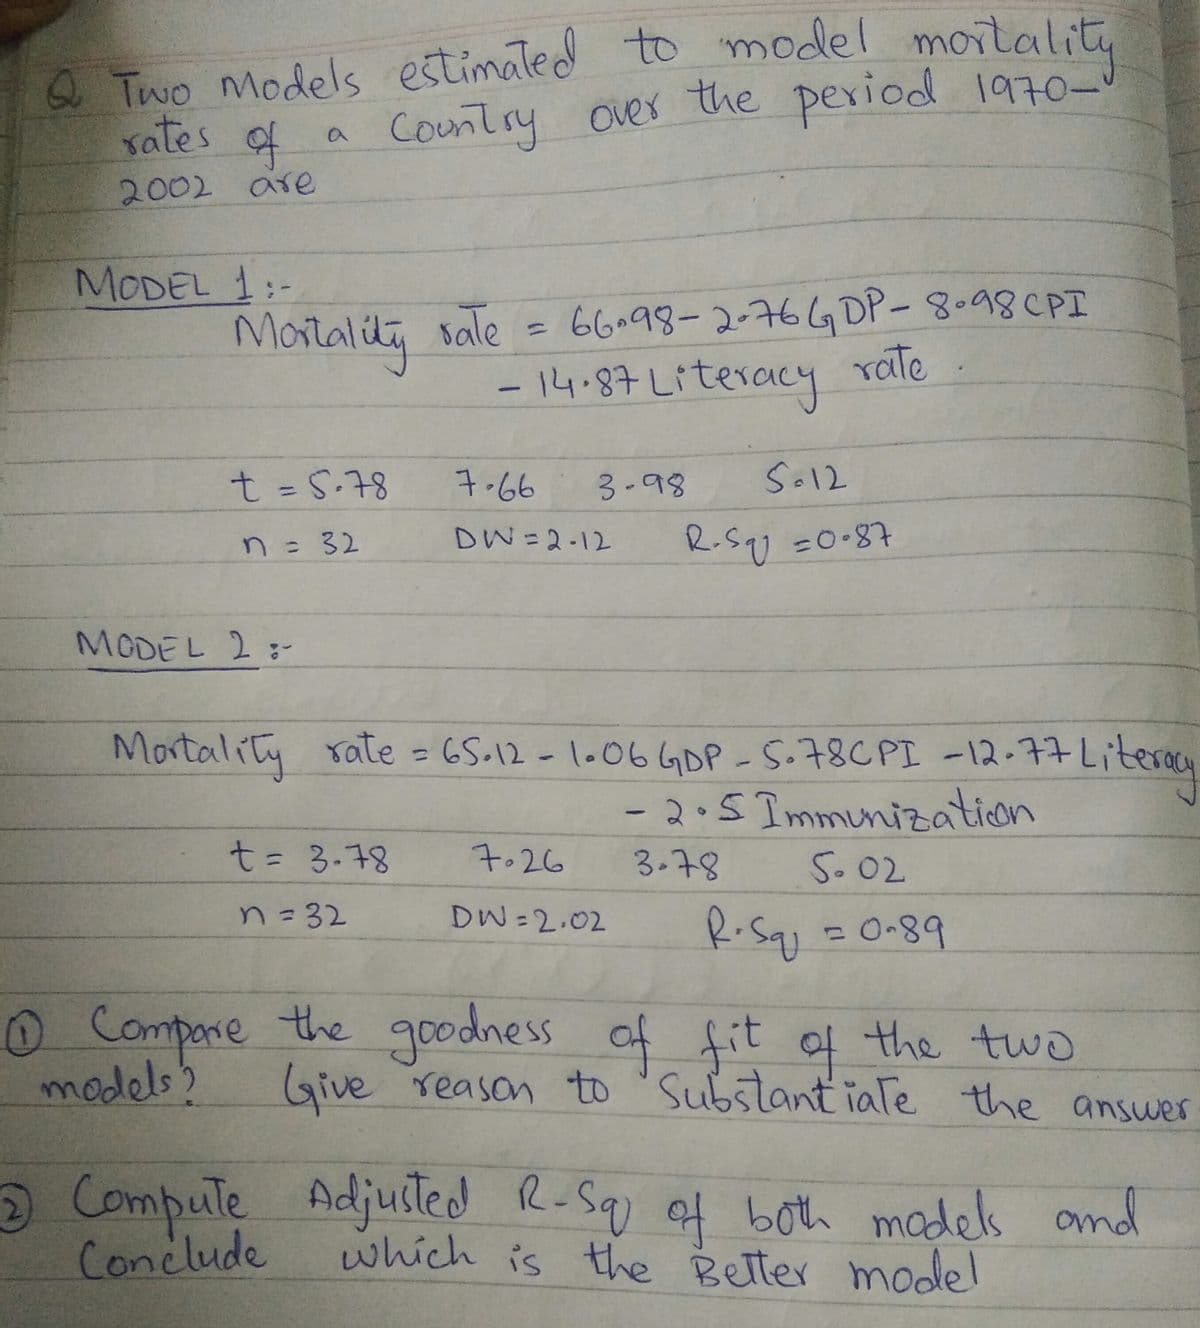 Q Two Models estimated to model mortality
rates of a Country over the period 1970-
2002 are
MODEL 1 :-
Mortality rate = 66.98 - 2.76 GDP - 8.98 CPI
- 14.87 Literacy rate.
t = 5.78 7.66 3.98 5.12
n = 32 DW = 2.12 R.Sq = 0.87
MODEL 2 :-
Mortality rate = 65.12 - 1.06 GDP - 5.78 CPI - 12.77 Literacy
- 2.5 Immunization
t = 3.78 7.26 3.78 5.02
n = 32 DW = 2.02 R.Sq = 0.89
① Compare the goodness of fit of the two
models? Give reason to Substantiate the answer
② Compute Adjusted R-Sq of both models and
Conclude which is the Better model